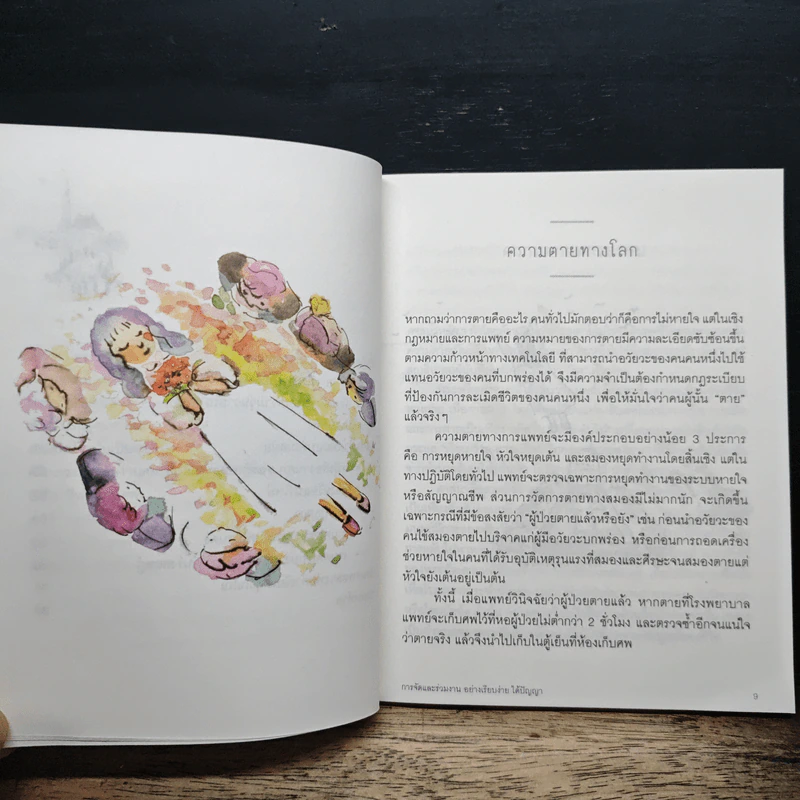 ความตายทางโลก
หากถามว่าการตายคืออะไร คนทั่วไปมักตอบว่าก็คือการไม่หายใจ แต่ในเชิง
กฎหมายและการแพทย์ ความหมายของการตายมีความละเอียดซับซ้อนขึ้น
ตามความก้าวหน้าทางเทคโนโลยี ที่สามารถนำอวัยวะของคนคนหนึ่งไปใช้
แทนอวัยวะของคนที่บกพร่องได้ จึงมีความจำเป็นต้องกำหนดกฎระเบียบ
ที่ป้องกันการละเมิดชีวิตของคนคนหนึ่ง เพื่อให้มั่นใจว่าคนผู้นั้น “ตาย”
แล้วจริงๆ
ความตายทางการแพทย์จะมีองค์ประกอบอย่างน้อย 3 ประการ
คือ การหยุดหายใจ หัวใจหยุดเต้น และสมองหยุดทำงานโดยสิ้นเชิง แต่ใน
ทางปฏิบัติโดยทั่วไป แพทย์จะตรวจเฉพาะการหยุดทำงานของระบบหายใจ
หรือสัญญาณชีพ ส่วนการวัดการตายทางสมองมีไม่มากนัก จะเกิดขึ้น
เฉพาะกรณีที่มีข้อสงสัยว่า “ผู้ป่วยตายแล้วหรือยัง” เช่น ก่อนนำอวัยวะของ
คนไข้สมองตายไปบริจาคแก่ผู้มีอวัยวะบกพร่อง หรือก่อนการถอดเครื่อง
ช่วยหายใจในคนที่ได้รับอุบัติเหตุรุนแรงที่สมองและศีรษะจนสมองตายแต่
หัวใจยังเต้นอยู่เป็นต้น
ทั้งนี้ เมื่อแพทย์วินิจฉัยว่าผู้ป่วยตายแล้ว หากตายที่โรงพยาบาล
แพทย์จะเก็บศพไว้ที่หอผู้ป่วยไม่ต่ำกว่า 2 ชั่วโมง และตรวจซ้ำอีกจนแน่ใจ
ว่าตายจริง แล้วจึงนำไปเก็บในตู้เย็นที่ห้องเก็บศพ
การจัดและร่วมงาน อย่างเรียบง่าย ได้ปัญญา
9